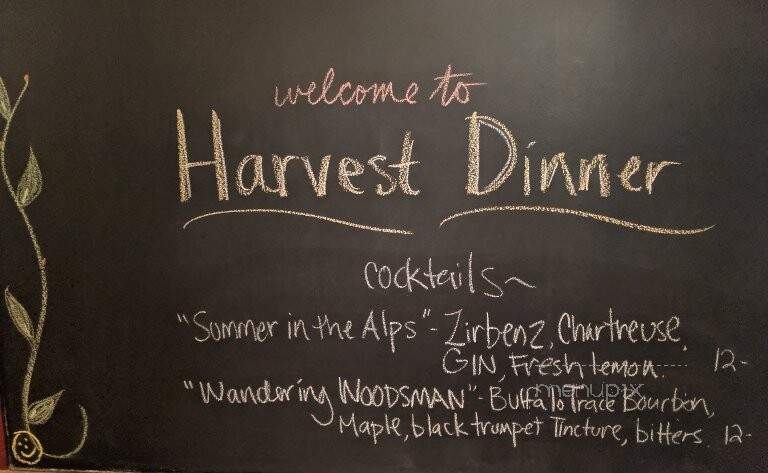 welcome to
Harvest Dinner
cocktails~
"Summer in the Alps" - Zirbenz, Chartreuse,
GIN, Fresh lemon. ..... 12-
"Wandering WOODSMAN" - Buffalo Trace Bourbon,
Maple, black trumpet Tincture, bitters. 12-
menupix